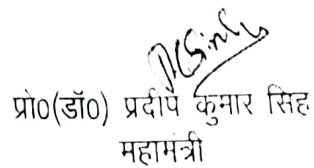 प्रो0(डॉ0) प्रदीप कुमार सिंह
महामंत्री